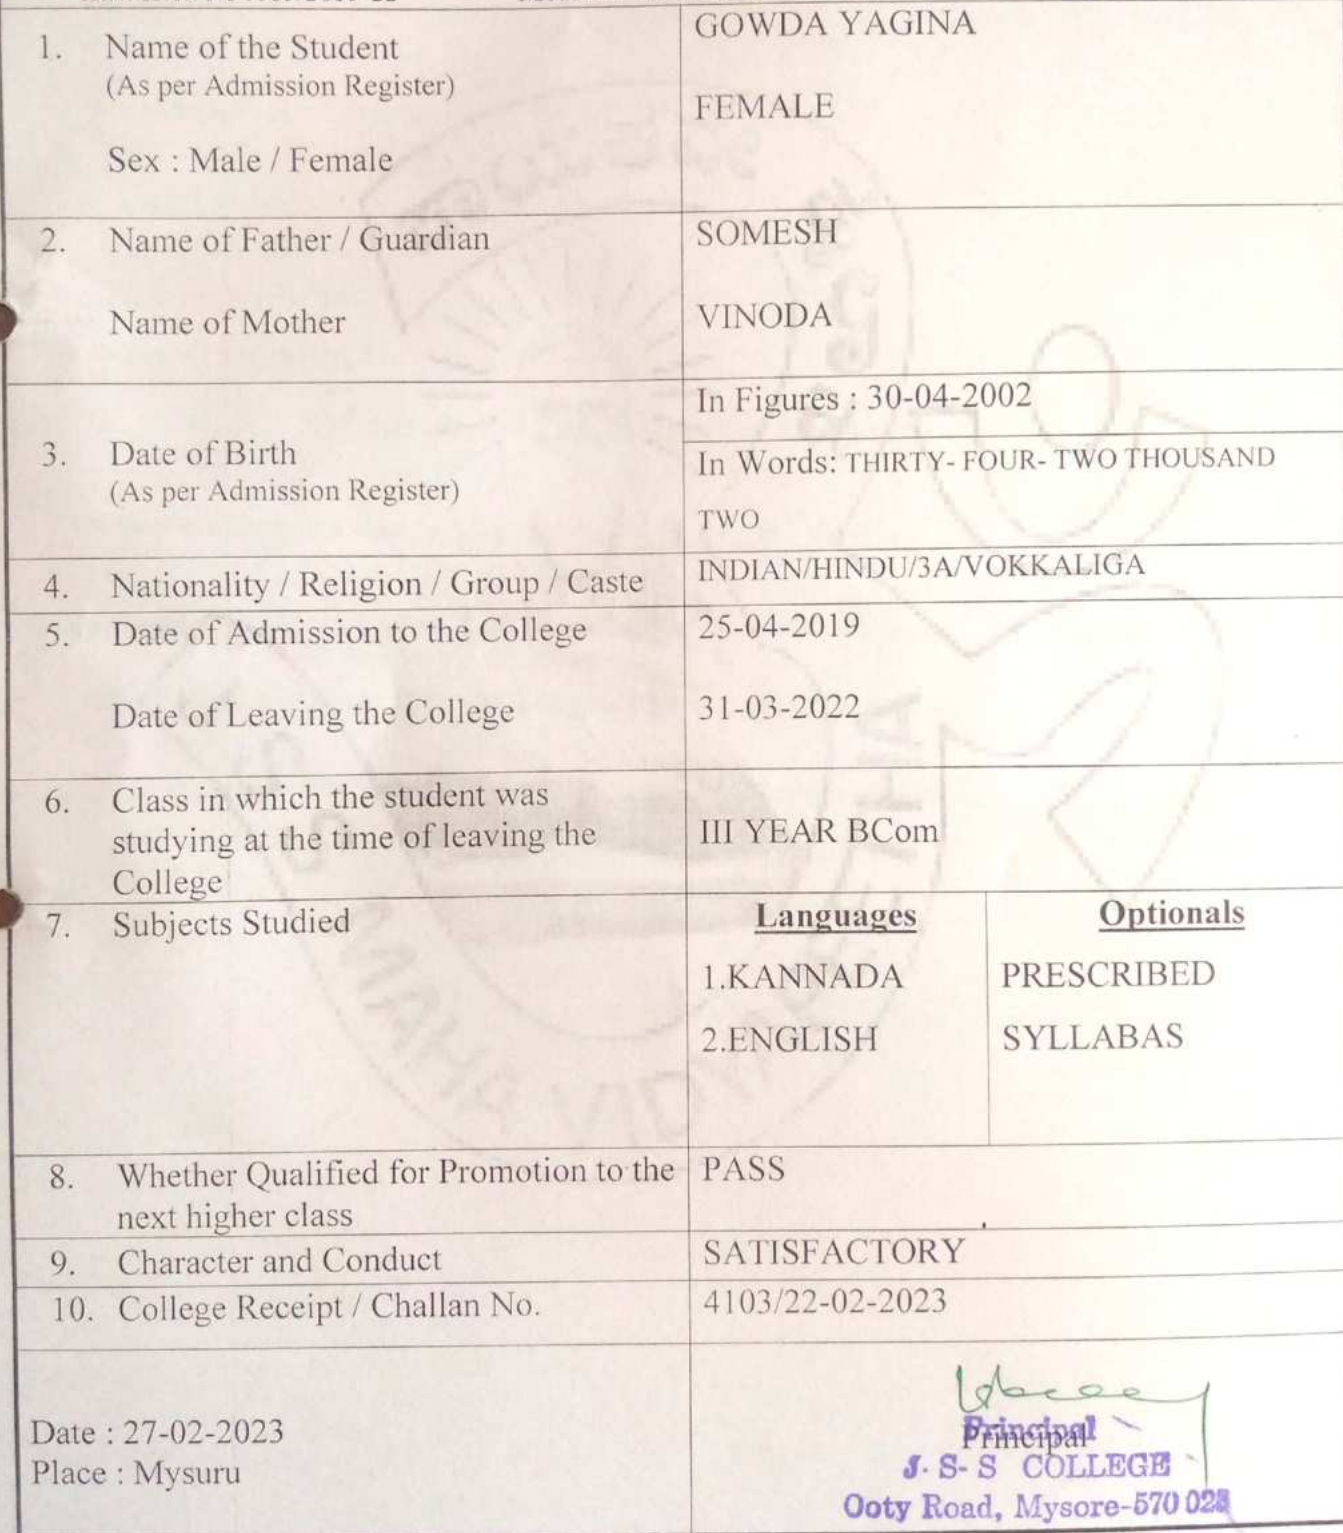 GOWDA YAGINA
1. Name of the Student
(As per Admission Register)
FEMALE
Sex : Male / Female
2. Name of Father / Guardian
SOMESH
Name of Mother
VINODA
In Figures : 30-04-2002
3. Date of Birth
(As per Admission Register)
In Words: THIRTY- FOUR- TWO THOUSAND
TWO
4. Nationality / Religion / Group / Caste
INDIAN/HINDU/3A/VOKKALIGA
5. Date of Admission to the College
25-04-2019
Date of Leaving the College
31-03-2022
6. Class in which the student was
studying at the time of leaving the
College
III YEAR BCom
7. Subjects Studied
Languages
Optionals
1.KANNADA
PRESCRIBED
2.ENGLISH
SYLLABAS
8. Whether Qualified for Promotion to the
next higher class
PASS
9. Character and Conduct
SATISFACTORY
10. College Receipt / Challan No.
4103/22-02-2023
Date : 27-02-2023
Place : Mysuru
Principal
Principal
J. S- S COLLEGE
Ooty Road, Mysore-570 025